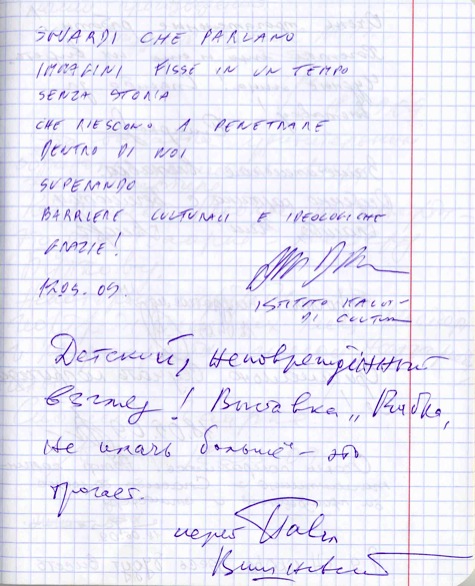 SGUARDI CHE PARLANO
IMMAGINI FISSE IN UN TEMPO
SENZA STORIA
CHE RIESCONO A PENETRARE
DENTRO DI NOI
SUPERANDO
BARRIERE CULTURALI E IDEOLOGICHE
GRAZIE!
12.03.09.
ISTITUTO ITALIANO
DI CULTURA
Детский, неповреждённый
взгляд! Выставка „Рыбка,
не плачь больше“ – это
трогает.
иерей Павел